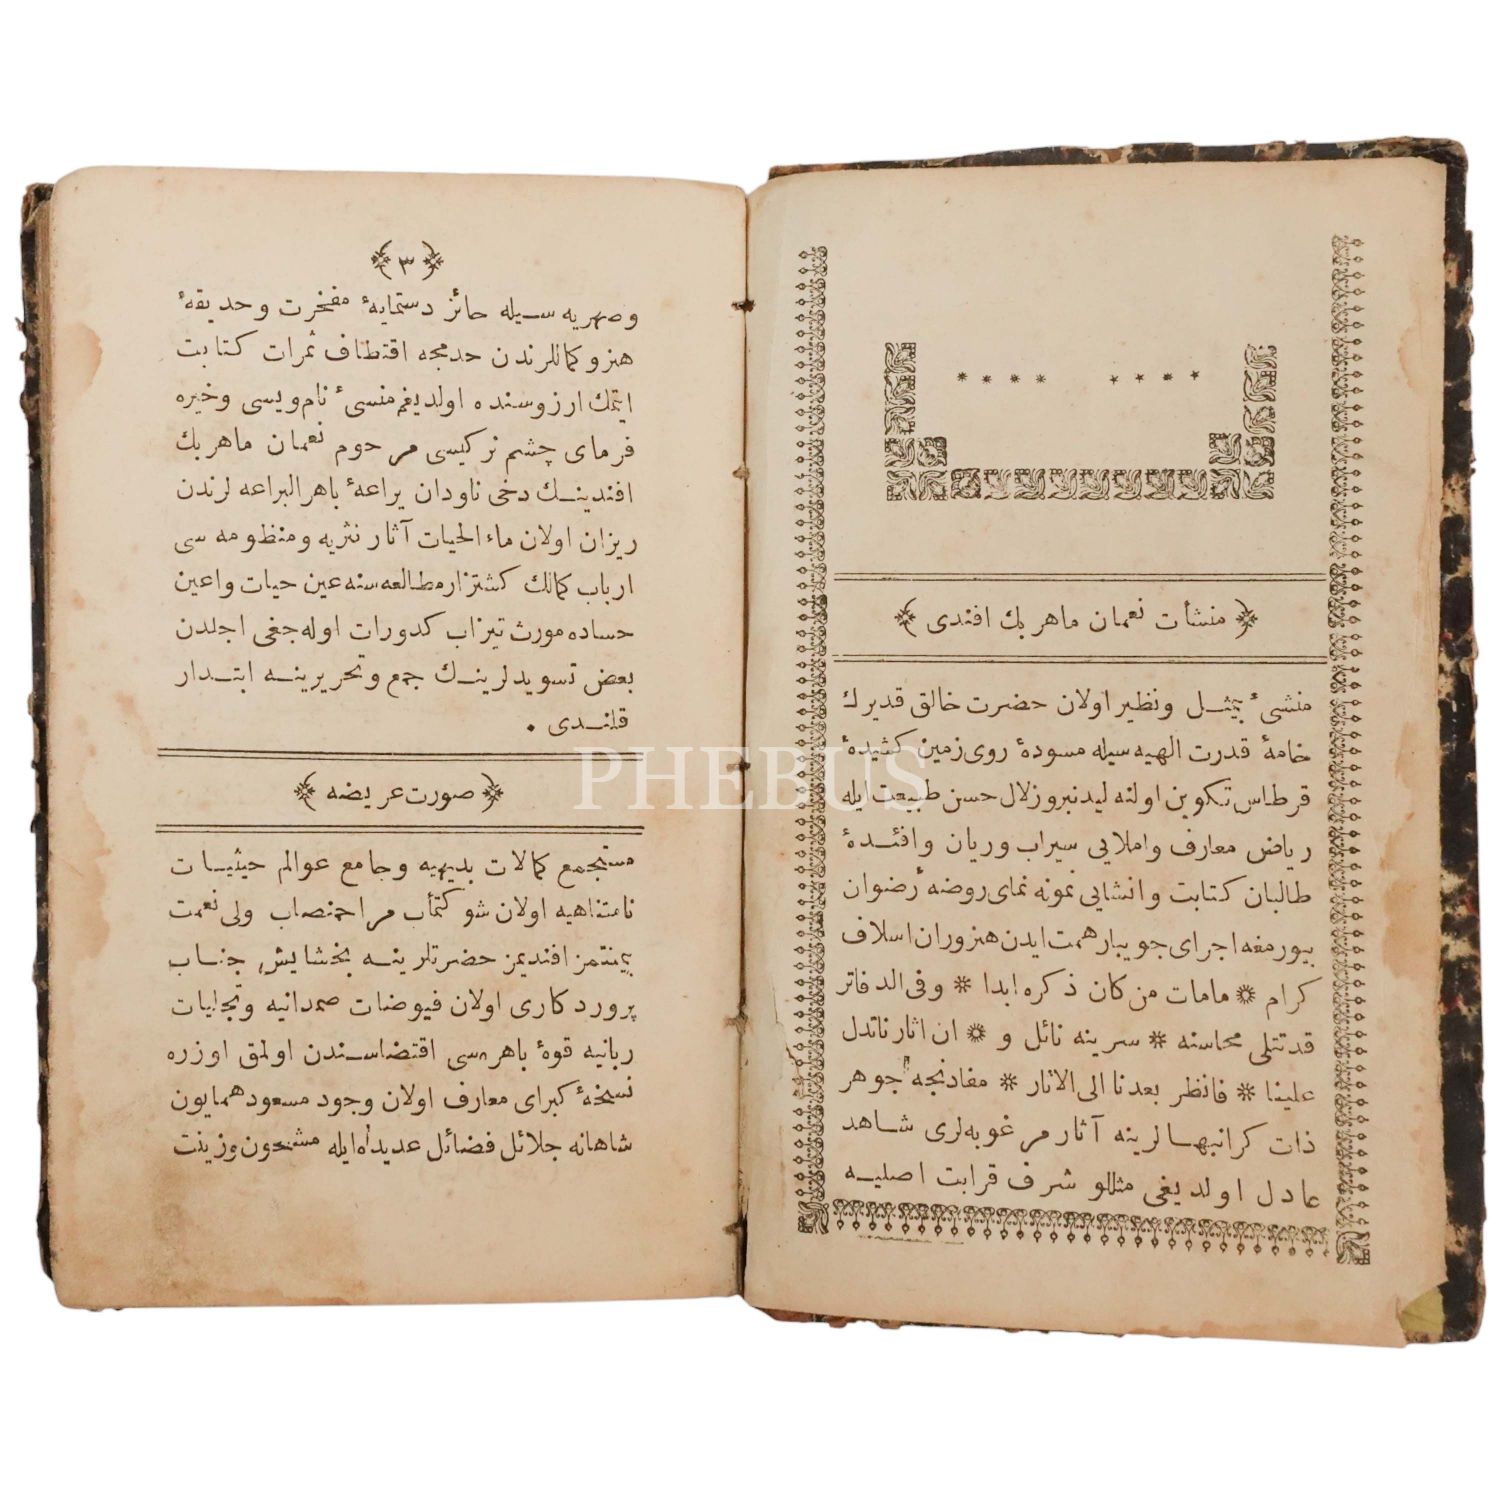 منشأت نعمان ماهر بك افندی
منشیٔ بیمثـل ونظیر اولان حضرت خالق قدیرك
خامهٔ قدرت الهیه سیله مسودهٔ روی زمین كشیدهٔ
قرطاس تكوین اولنه لیدنبرو زلال حسن طبیعت ایله
ریاض معارف واملایی سیراب وریان وافئـدهٔ
طالبان كتابت وانشایی نمونه نمای روضهٔ رضوان
بیورمغه اجرای جویبار همت ایدن هنزوران اسلاف
كرام * مامات من كان ذكره ابدا * وفی الدفاتر
قدتتلی محاسنه * سرینه نائل و * ان اثارناتدل
علینا * فانظر بعدنا الی الاثار * مفادنجه جوهر
ذات كرانبهـا لرینه آثار مرغوبه لری شـاهد
عادل اولدیغی مثللو شرف قرابت اصلیـه
٣
وصهریه سـیله حائز دستمایهٔ مفخرت وحدیقهٔ
هنزو كماللرندن حدمجه اقتطاف ثمرات كتابت
ایتمك ارزوسنده اولدیغم منسیٔ نام ویسی وخیره
فرمای چشم نركیسی مرحوم نعمان ماهر بك
افندینـك دخی ناودان یراعهٔ باهر البراعه لرندن
ریزان اولان ماء الحیات آثار نثریه ومنظومه سی
ارباب كمالك كشتزار مطالعه سنه عین حیات واعین
حساده مورث تیزاب كدورات اوله جغی اجلدن
بعض تسوید لرینـك جمع وتحریرینـه ابتـدار
قلنـدی ٠
صورت عریضه
مستجمع كمالات بدیهیه وجامع عوالم حیثیـات
نامتناهیه اولان شو كتمأب مراحمنصاب ولی نعمت
بیمنتمز افندیمز حضرتلرینـه بخشایش جنـاب
پروردكاری اولان فیوضات صمدانیه وتجلیات
ربانیه قوهٔ باهره سی اقتضاسـندن اولمق اوزره
نسخهٔ كبرای معارف اولان وجود مسعود همایون
شاهانه جلائل فضائل عدیده ایله مشحون وزینت